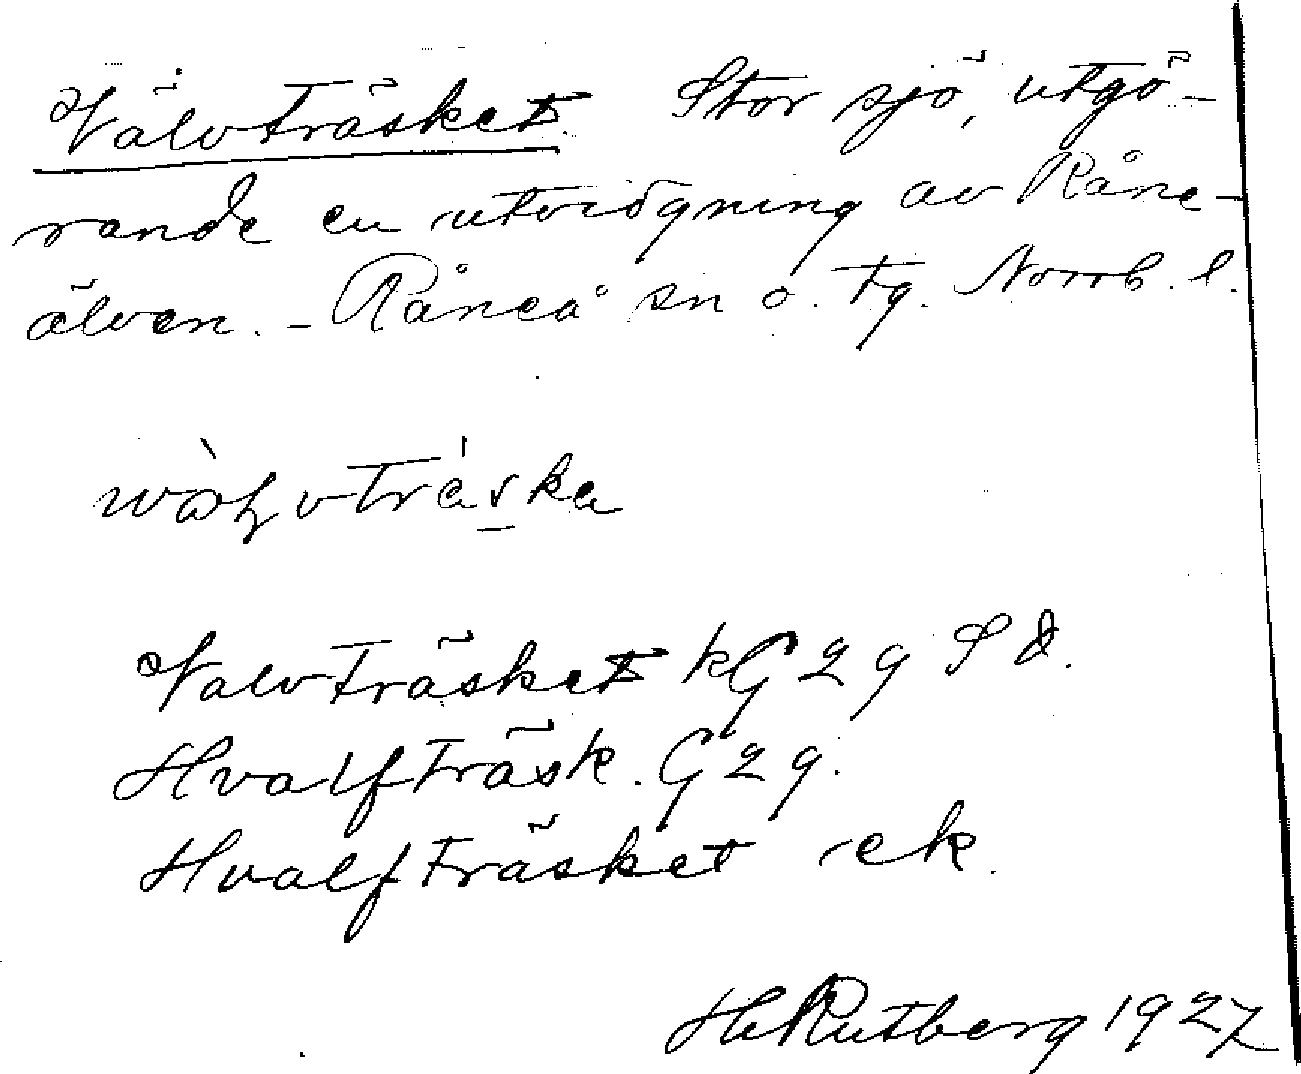 Välvträsket. Stor sjö, utgö-
rande en utvidgning av Råne-
älven. - Råneå sn o. tg. Norrb. l.
Valvträsket kG 2 9 S d.
Hvalfträsk. G 2 9.
Hvalfträsket ek.
H Rutberg 1927